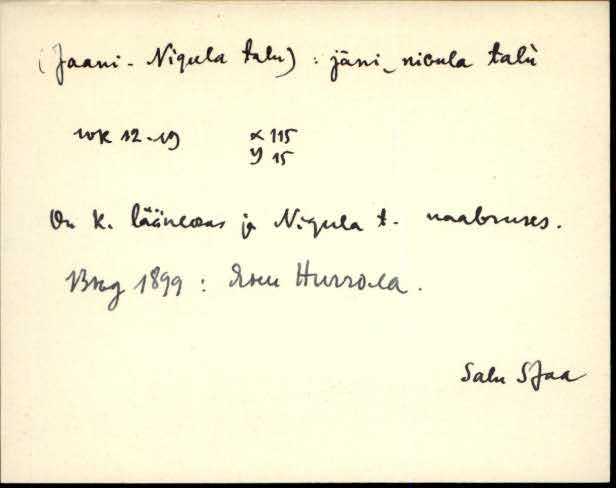 (Jaani-Nigula talu) : jäni_nicula talù
wk 12-19 x 115
y 15
On k. lääneosas ja Nigula t. naabruses.
1899 : Яни Никола.
Salu SJaa